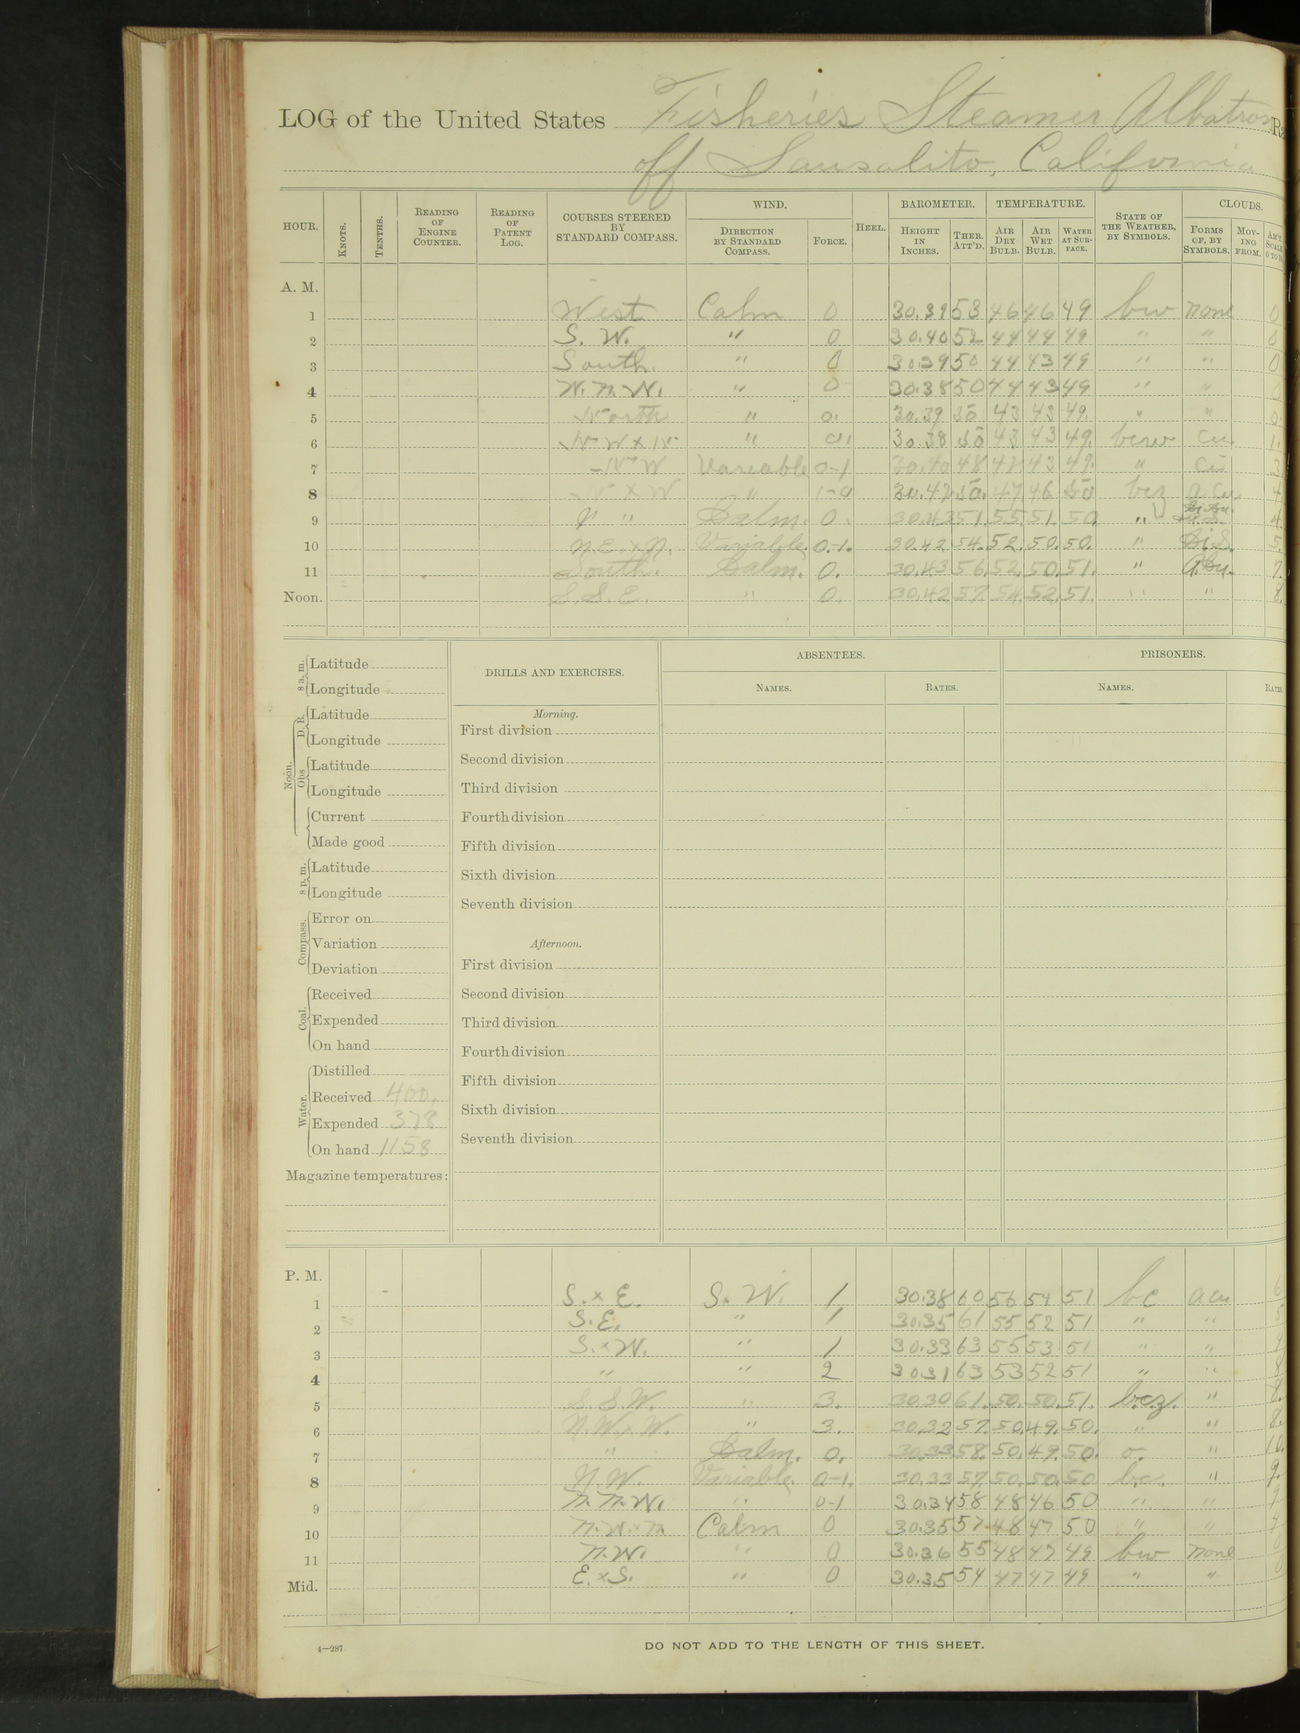 LOG of the United States Fisheries Steamer Albatross R
off Sausalito, California
HOUR. KNOTS. TENTHS. READING OF ENGINE COUNTER. READING OF PATENT LOG. COURSES STEERED BY STANDARD COMPASS. WIND. DIRECTION BY STANDARD COMPASS. FORCE. HEEL. BAROMETER. HEIGHT IN INCHES. THER. ATT'D. TEMPERATURE. AIR DRY BULB. AIR WET BULB. WATER AT SURFACE. STATE OF THE WEATHER, BY SYMBOLS. CLOUDS. FORMS OF, BY SYMBOLS. MOVING FROM. AM'T. SCALE 0 TO 10
A. M.
1 West Calm 0 30.39 53 46 46 49 bw none 0
2 S. W. " 0 30.40 52 44 44 49 " " 0
3 South. " 0 30.39 50 44 43 49 " " 0
4 N.N.W. " 0 30.38 50 44 43 49 " " 0
5 North " 0. 30.39 50 43 43 49. " " 0
6 N W x N " 0. 30.38 50 43 43 49. bcw cu. 1.
7 N W Variable 0-1 30.40 48 42 43 49. " cu 3
8 N x W " 1-0 30.42 50. 47 46 50 bcz a.cu 4
9 " " Calm. 0. 30.43 51. 55. 51. 50 " 4.
10 N.E.xN. Variable. 0-1. 30.42 54. 52. 50. 50. " Ci.S. 5.
11 South. Calm. 0. 30.43 56. 52. 50. 51. " A.Cu. 7.
Noon. S.S.E. " 0. 30.42 57. 54. 52. 51. " " 8.
DRILLS AND EXERCISES. ABSENTEES. NAMES. RATES. PRISONERS. NAMES. RATES.
8 a. m. Latitude
Longitude
Noon. D. R. Latitude
Longitude
Obs Latitude
Longitude
Current
Made good
8 p. m. Latitude
Longitude
Compass. Error on
Variation
Deviation
Coal. Received
Expended
On hand
Water. Distilled
Received 400.
Expended 378
On hand 1158
Magazine temperatures:
Morning.
First division
Second division
Third division
Fourth division
Fifth division
Sixth division
Seventh division
Afternoon.
First division
Second division
Third division
Fourth division
Fifth division
Sixth division
Seventh division
P. M.
1 S.xE. S.W. 1 30.38 60 56 54 51 bc acu 6
2 S.E. " 1 30.35 61 55 52 51 " " 5
3 S.xW. " 1 30.33 63 55 53 51 " "
4 " " 2 30.31 63 53 52 51 " " 8
5 S.S.W. " 3. 30.30 61. 50. 50. 51. b.c.z. " 8.
6 N.W.xW. " 3. 30.32 57. 50. 49. 50. " " 8.
7 " Calm. 0. 30.33 58. 50. 49. 50. o. " 10.
8 N.W. Variable 0-1. 30.33 57. 50. 50. 50 b.c. " 9.
9 N.N.W. " 0-1 30.34 58 48 46 50 " " 9
10 N.W.xN Calm 0 30.35 57 48 47 50 " "
11 N.W. " 0 30.36 55 48 47 49 bw none 0
Mid. E.xS. " 0 30.35 54 47 47 49 " " 0
4—287
DO NOT ADD TO THE LENGTH OF THIS SHEET.